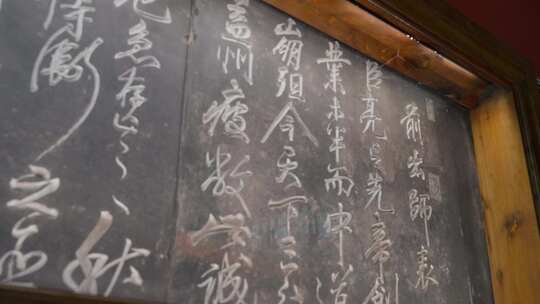 前出師表
臣亮言先帝創
業未半而中道
崩殂今天下三分
益州疲敝此誠
危急存亡之秋
侍衛之臣